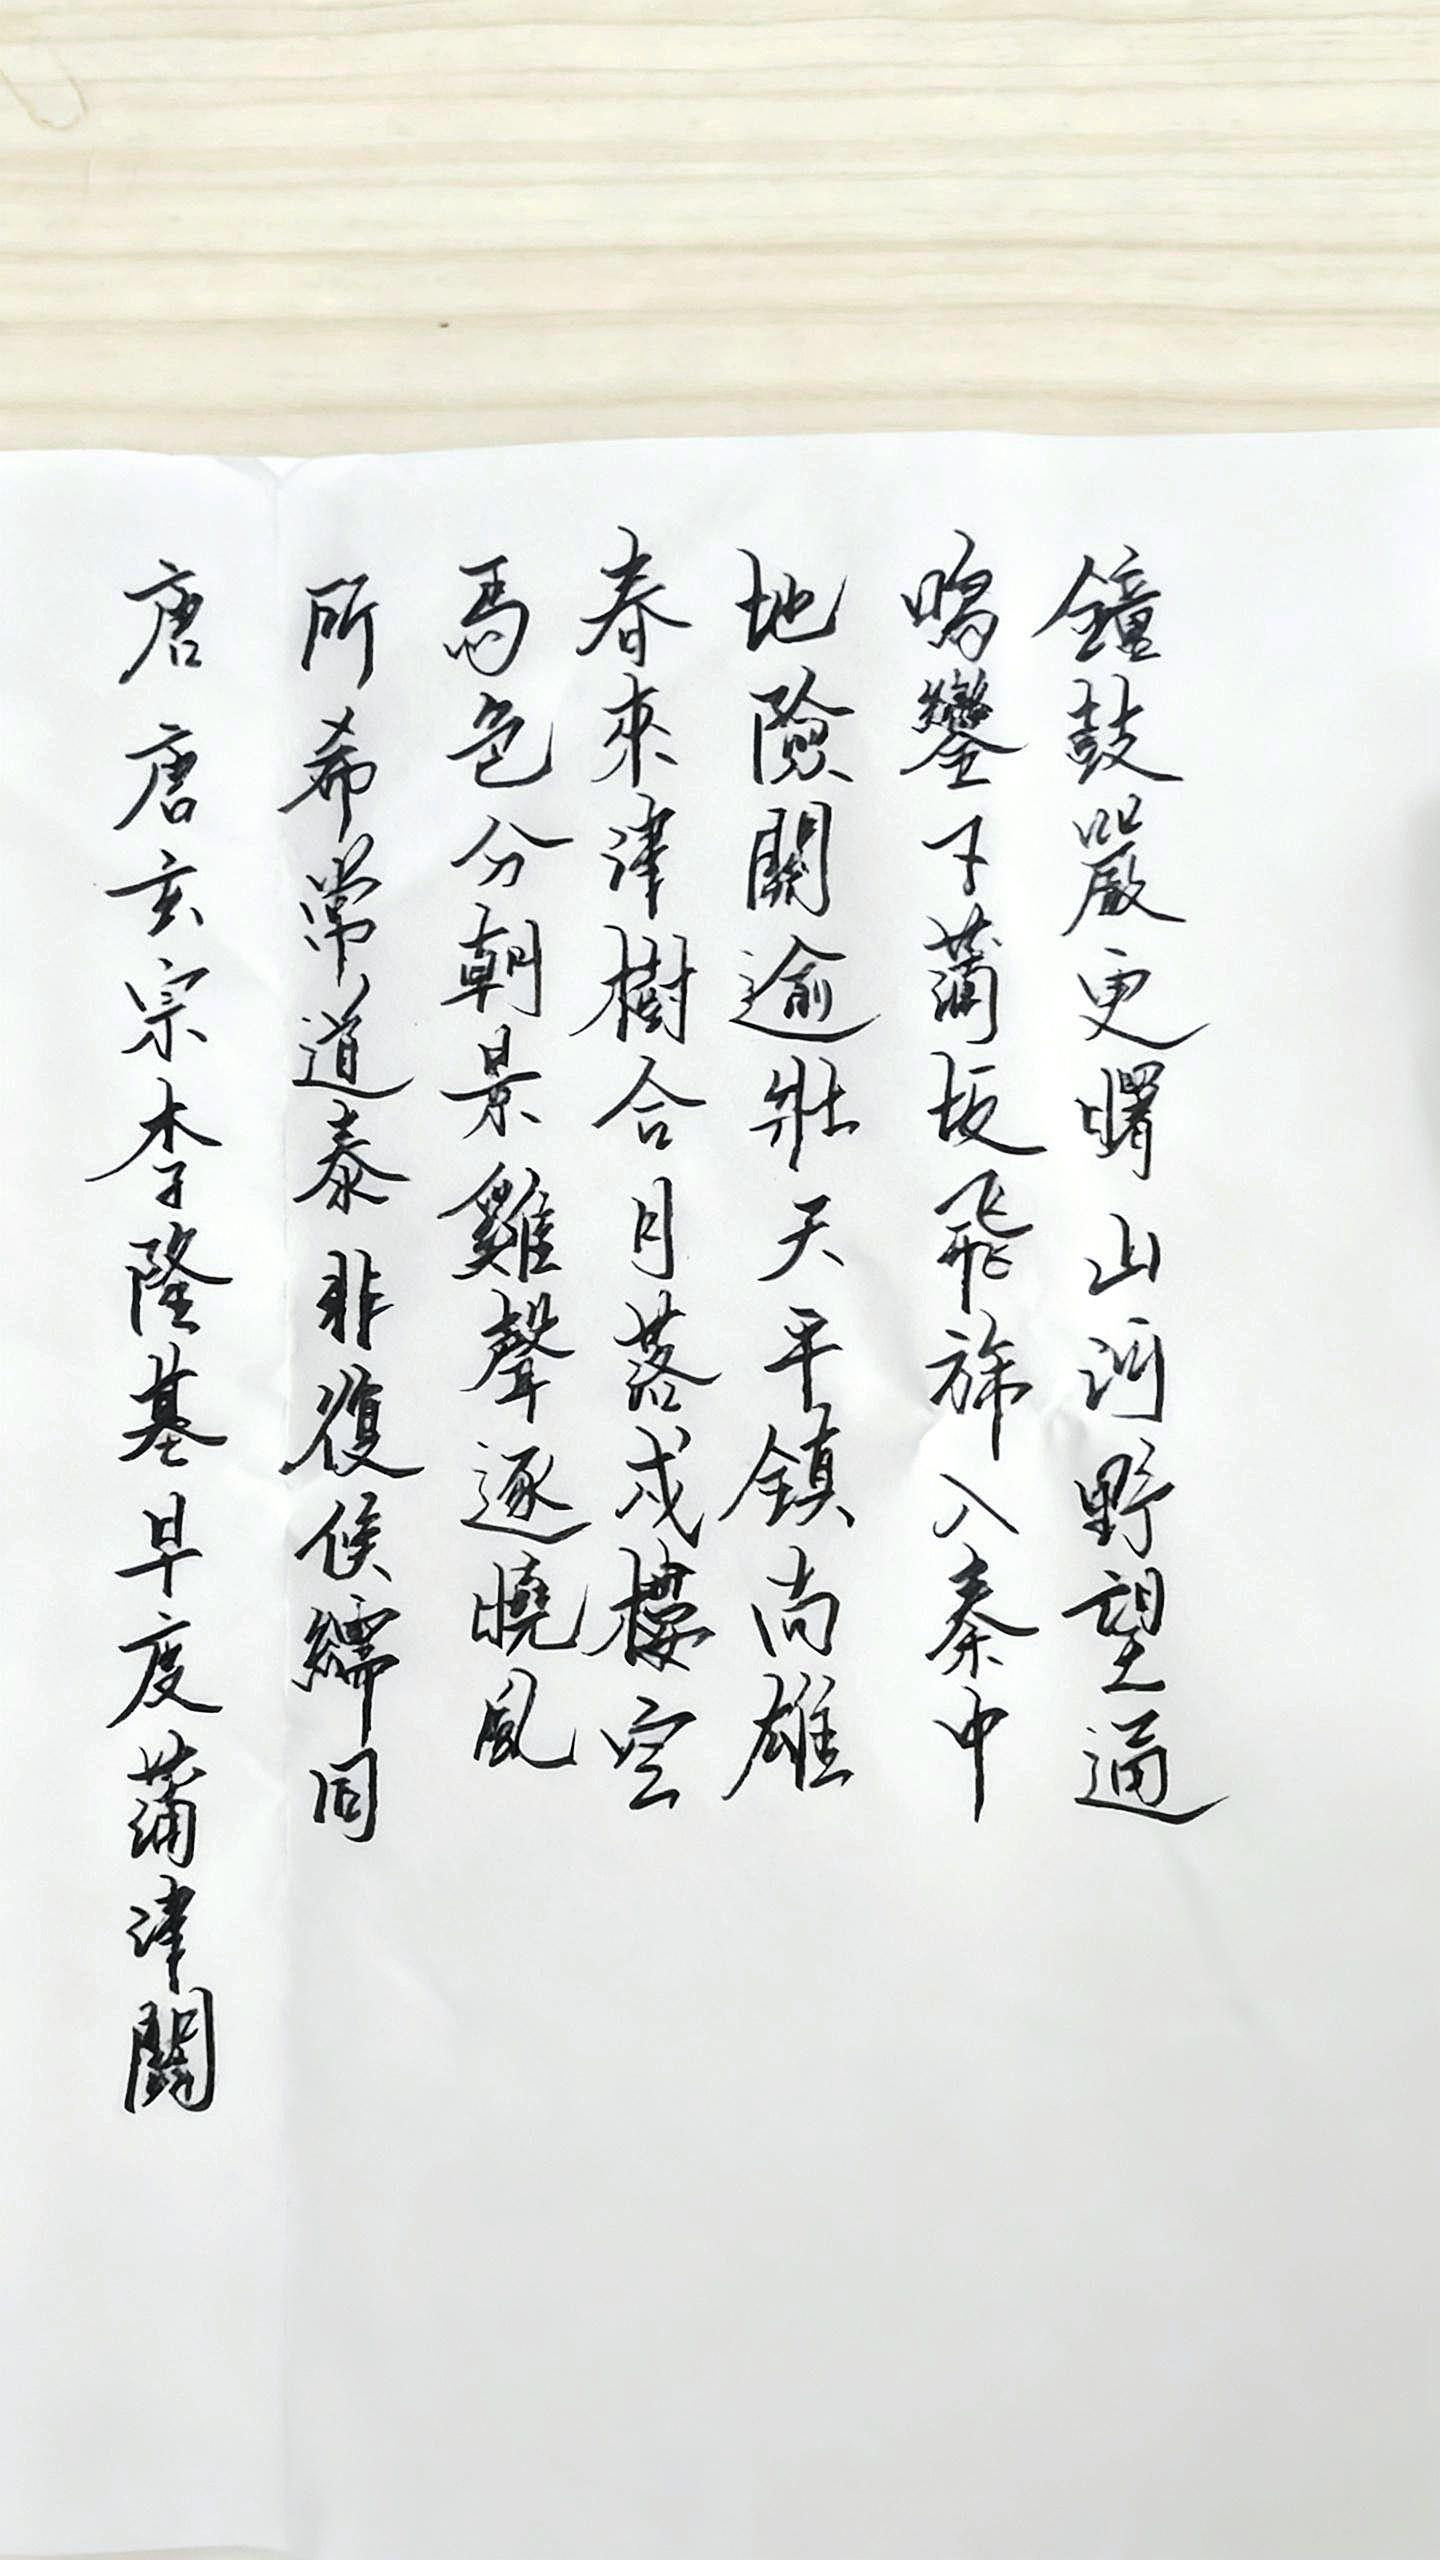 鐘鼓嚴更曙山河野望通
鳴鑾下蒲坂飛旆入秦中
地險關逾壯天平鎮尚雄
春來津樹合月落戍樓空
馬色分朝景雞聲逐曉風
所希常道泰非復候繻同
唐唐玄宗李隆基早度蒲津關